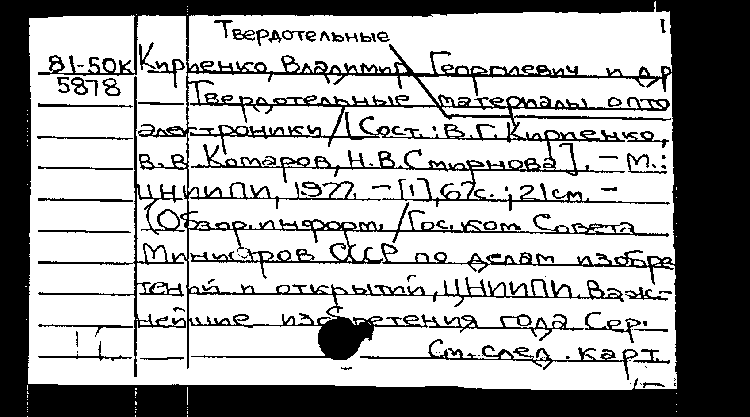 Твердотельные
1
81-50к Кириенко, Владимир Георгиевич и др
5878 Твердотельные материалы опто
электроники / [Сост.: В.Г. Кириенко,
В.В. Комаров, Н.В. Смирнова]. – М.:
ЦНИИПИ, 1977. – [1], 67с.; 21см. –
(Обзор. информ. / Гос. ком. Совета
Министров СССР по делам изобре
тений и открытий, ЦНИИПИ. Важ-
нейшие изобретения года. Сер.
См. след. карт.